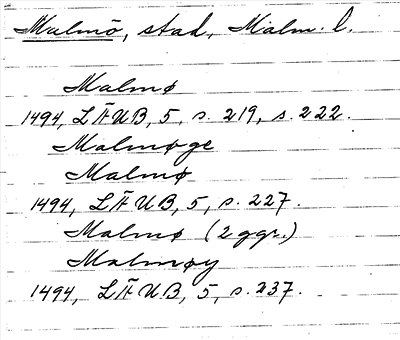 Malmö, stad, Malm. l.
Malmø
1494, LÄUB, 5, s. 219, s. 222.
Malmøge
Malmø
1494, LÄUB, 5, s. 227.
Malmø (2 ggr.)
Malmøy
1494, LÄUB, 5, s. 237.